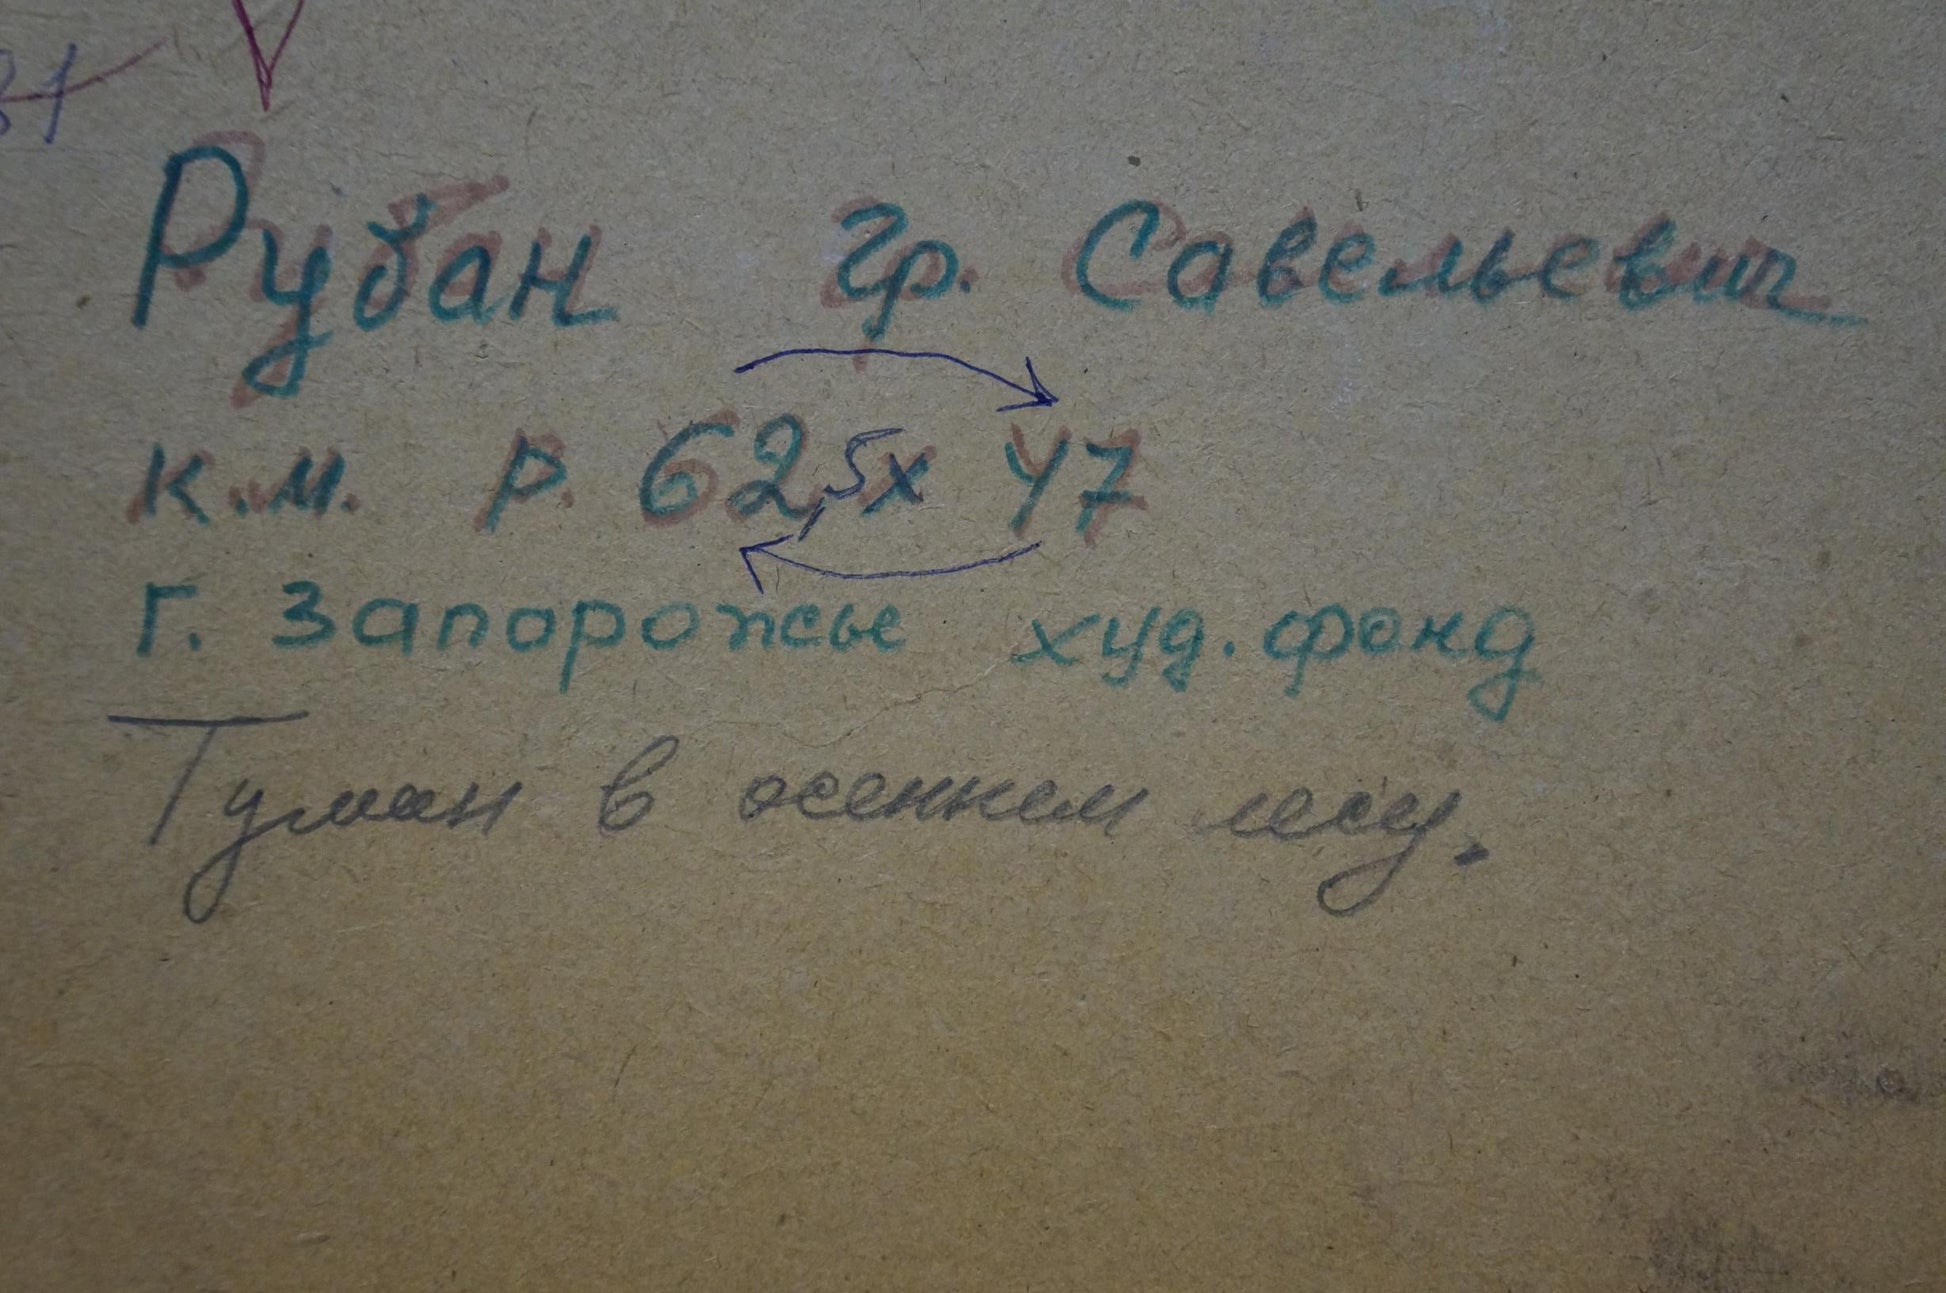 Рубан Гр. Савельевич
к.м. р. 62,5х 47
г. Запорожье худ. фонд
Туман в осеннем лесу.